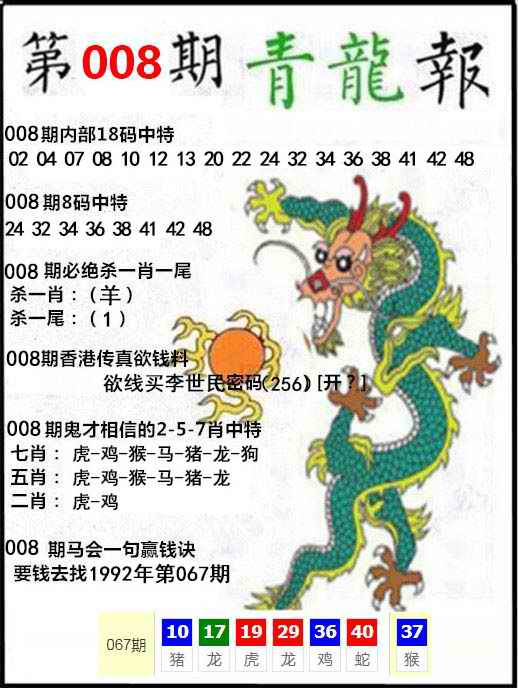 第008期青龍報
008期内部18码中特
02 04 07 08 10 12 13 20 22 24 32 34 36 38 41 42 48
008期8码中特
24 32 34 36 38 41 42 48
008 期必绝杀一肖一尾
杀一肖：（羊）
杀一尾：（1）
008期香港传真欲钱料
欲线买李世民密码(256) [开？]
008期鬼才相信的2-5-7肖中特
七肖： 虎-鸡-猴-马-猪-龙-狗
五肖： 虎-鸡-猴-马-猪-龙
二肖： 虎-鸡
008 期马会一句赢钱诀
要钱去找1992年第067期
067期 10 17 19 29 36 40 37
猪 龙 虎 龙 鸡 蛇 猴